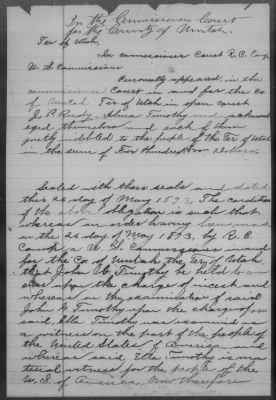 In the Commissioners Court
for the County of Uintah.
Ter of Utah,
In commissioner Court R.C. Camp
U. S. Commissioner
Personally appeared in the
commissioners Court in and for the Co
of Uintah Ter of Utah in open court
J. P. Alma Timothy and acknowl
eged themselves and each of them
jointly indebted to the people of the Ter of Utah
in the sum of hundred Dollars
Sealed with their seals and dated
this 26 day of May 1893. The condition
of the above obligation is such that
whereas an order having been made
on the 26 day of May 1893, by R. C.
Camp a U. S. Commissioner in and
for the Co of Uintah the Ter of Utah
that John G. Timothy be held to an
swer upon the charge of incest and
whereas on the examination of said
John G. Timothy upon the charge afore
said, Etta Timothy was examined as
a witness on the part of the people of
the United States of America and
whereas said Etta Timothy is a ma
terial witness for the people of the
U.S. of America, Now therefore